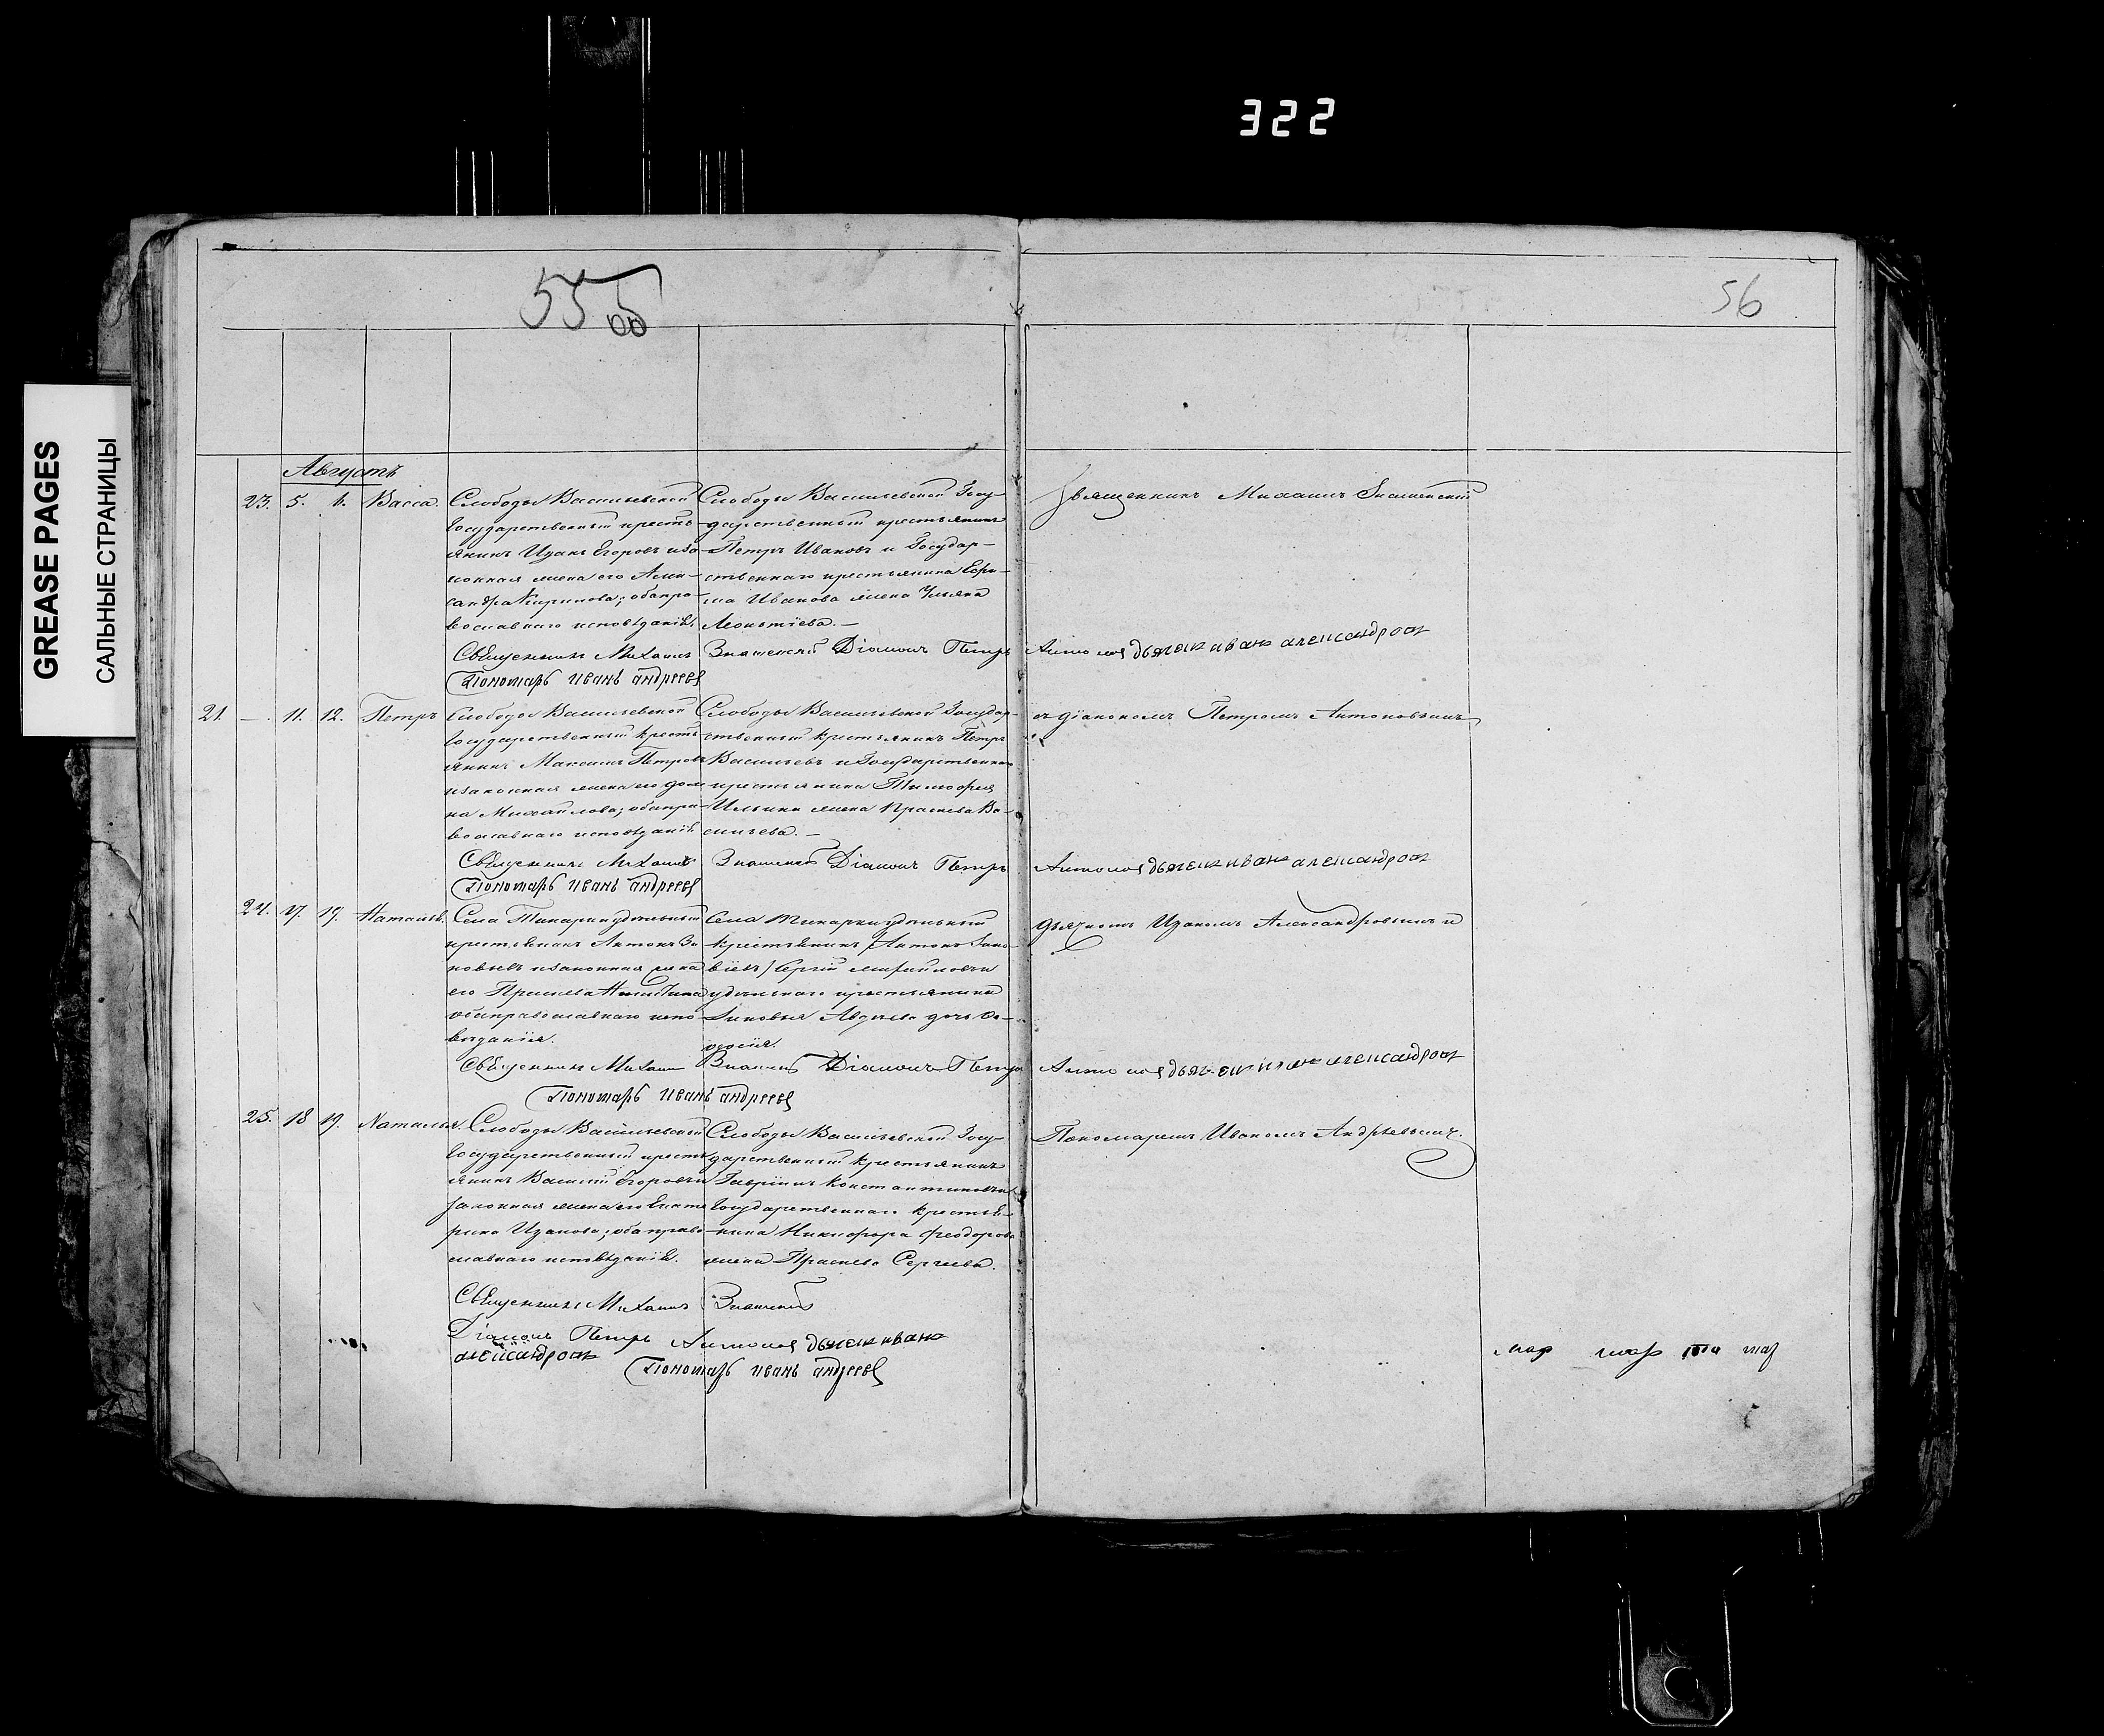 322
GREASE PAGES
САЛЬНЫЕ СТРАНИЦЫ
55об
56
Августъ
23. 5. 6. Васса.
Слободы Васильевской
Государственный кресть-
янинъ Иванъ Егоровъ и за-
конная жена его Алек-
сандра Кирилова; оба пра-
вославнаго исповѣданія.
Слободы Васильевской Госу-
дарственный крестьянинъ
Петръ Ивановъ и Государ-
ственнаго крестьянина Ефи-
ма Иванова жена Ульяна
Леонтіева.
Священникъ Михаилъ Знаменскій
Священникъ Михаилъ Знаменскій Діаконъ Петръ Антоновъ дьячекъ иванъ александровъ
Пономарь иванъ андреевъ
21. —. 11. 12. Петръ
Слободы Васильевской
Государственный кресть-
янинъ Максимъ Петровъ
и законная жена его Дом-
на Михайлова; оба пра-
вославнаго исповѣданія
Слободы Васильевской Государ-
ственный крестьянинъ Петръ
Васильевъ и Государственнаго
крестьянина Тимофея
Ильина жена Прасковья Ва-
сильева.
съ діакономъ Петромъ Антоновымъ,
Священникъ Михаилъ Знаменскій Діаконъ Петръ Антоновъ дьячекъ иванъ александровъ
Пономарь иванъ андреевъ
24. 17. 19. Наталья.
Села удѣльный
крестьянинъ Антонъ Зи-
новьевъ и законная жена
его Прасковья Никитина
оба православнаго испо-
вѣданія.
Села удѣльный
крестьянинъ Антонъ Зино-
віевъ) Сергій Михайловъ и
удѣльнаго крестьянина
Зиновья Авдѣева дочь Ѳе-
досія.
дьячкомъ Иваномъ Александровымъ и
Священникъ Михаилъ Знаменскій Діаконъ Петръ Антоновъ дьячекъ иванъ александровъ
Пономарь иванъ андреевъ
25. 18 19. Наталья.
Слободы Васильевской
Государственный кресть-
янинъ Василій Егоровъ и
законная жена его Екате-
рина Иванова; оба право-
славнаго исповѣданія.
Слободы Васильевской Госу-
дарственный крестьянинъ
Гавріилъ Константиновъ и
Государственнаго крестья-
нина Никифора Феодорова
жена Прасковья Сергеева.
Пономаремъ Иваномъ Андреевымъ.
Священникъ Михаилъ Знаменскій
Діаконъ Петръ Антоновъ дьячекъ иванъ
александровъ
Пономарь иванъ андреевъ